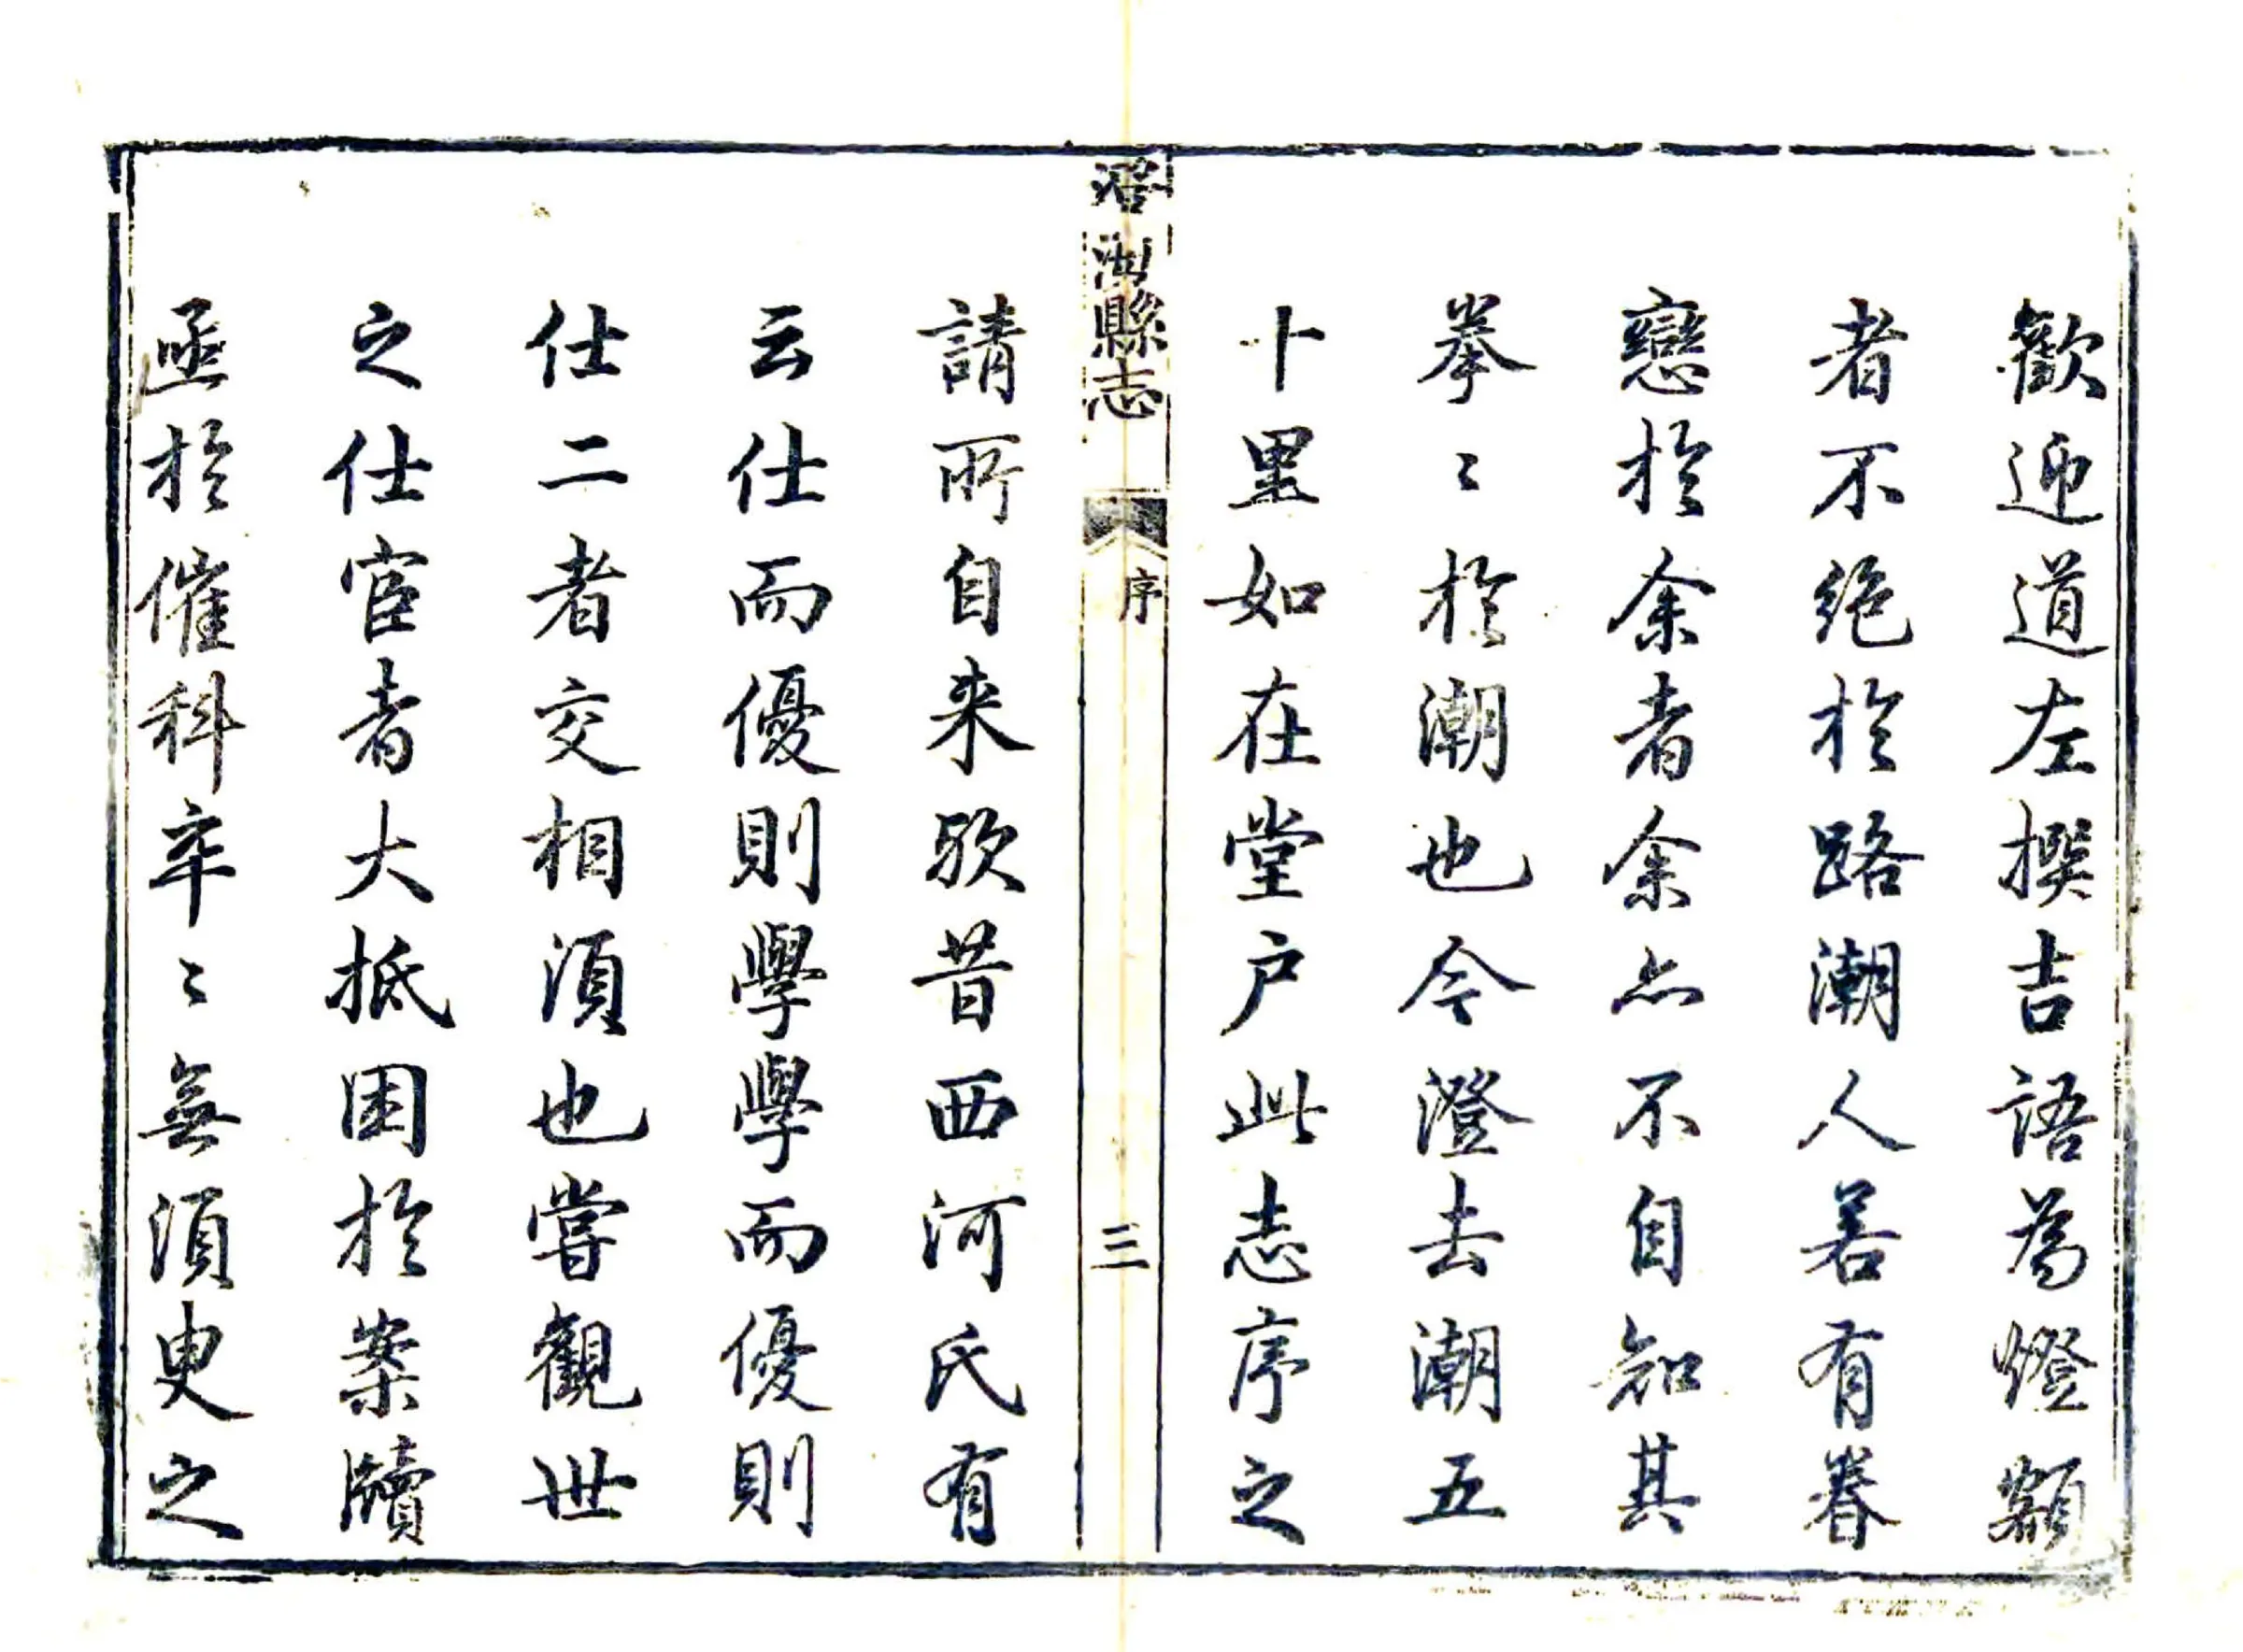 歡迎道左撰吉語為燈額
者不絕於路潮人若有眷
戀於余者余亦不自知其
拳〻於潮也今澄去潮五
十里如在堂戶此志序之
澄海縣志
序
三
請所自来歟昔西河氏有
云仕而優則學學而優則
仕二者交相須也嘗觀世
之仕宦者大抵困於案牘
亟於催科卒〻無須臾之